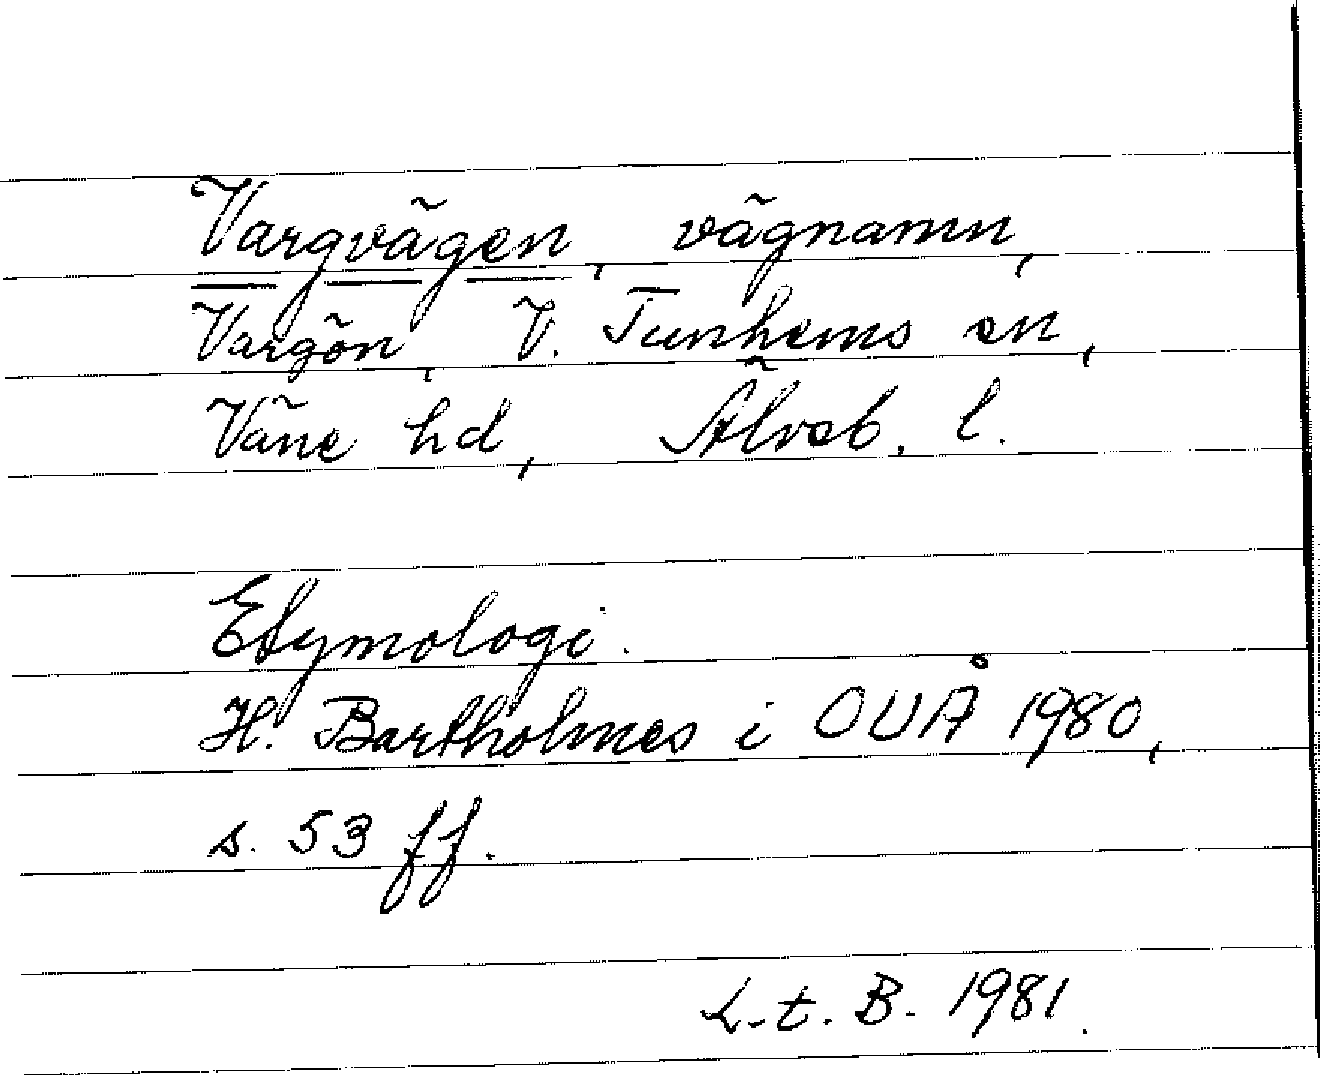 Vargvägen, vägnamn,
Vargön, V. Tunhems sn,
Väne hd, Älvsb. l.
Etymologi.
H. Bartholmes i OUÅ 1980,
s. 53 ff.
L.t. B. 1981.